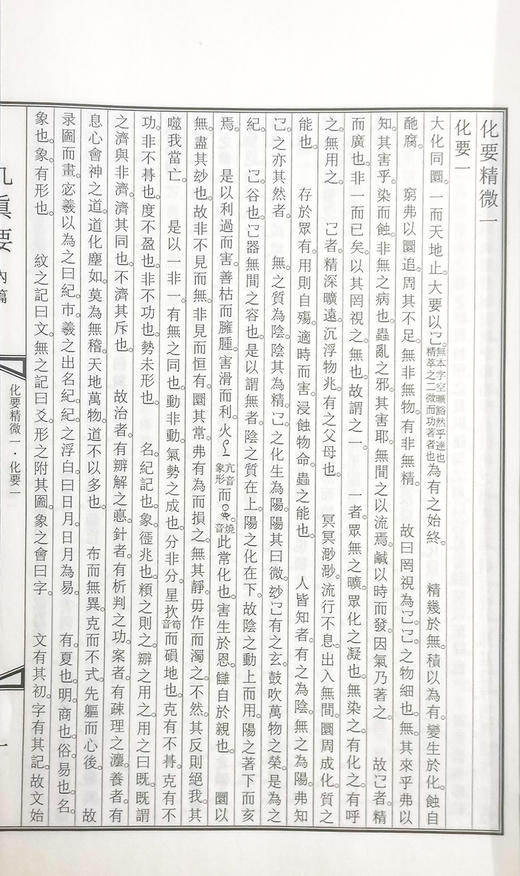 化要精微一
化要一
大化同圜。一而天地止。大要以㔾。無本字空曠豁然乎達也精萃之二微而功著者也為有之始終。 精幾於無。積以為有。變生於化。蝕自
酏腐。 窮弗以圜追。周其不足。無非無物。有非無精。 故曰罔視為㔾。㔾之物細也。無其來乎。弗以
知其害乎。染而蝕。非無之病也。蟲亂之邪。其害耶。無間之以流焉。鹹以時而發。因氣乃著之。 故㔾者。精
而廣也。非一而已矣。以其罔視之。無也。故謂之一。 一者。眾無之曠。眾化之凝也。無染之。有化之。有呼
之。無用之。 㔾者。精深曠遠。沉浮物兆。有之父母也。 冥冥渺渺。流行不息。出入無間。圜周成化。質之
能也。 存於眾。有用則自殤。適時而害。浸蝕物命。蟲之能也。 人皆知者。有之為陰。無之為陽。弗知
㔾之亦其然者。 無之質為陰。陰其為精。㔾之化生為陽。陽其曰微。玅㔾有之玄。鼓吹萬物之榮。是為之
紀。 㔾谷也。㔾器無間之容也。是以謂無者。陰之質在上。陽之化在下。故陰之動上而用。陽之著下而亥
焉。 是以利過而害。善枯而臃腫。害滑而利。火 亢音象形而 燒音此常化也。害生於恩。鏈自於親也。 圜以
無盡其玅也。故非不見而無。非見而恒有。圜其常。弗有為而損之。無其靜。毋作而濁之。不然。其反則絕我。其
噬我當亡。 是以一非一。有無之同也。動非動。氣勢之成也。分非分。星扻荀音而磒地也。克有不朞。克有不
功。非不朞也。度不盈也。非不功也。勢未形也。 名紀記也。象徑兆也。頪之則之。辧之用之。用之曰既。既謂
之濟與非濟。濟其同也。不濟其斥也。 故治者。有辧解之惪。針者。有析判之功。案者。有疎理之灋。養者。有
息心會神之道。道化塵如。莫為無稽。天地萬物。道不以多也。 布而無異。克而不式。先軀而心後。 故
录圖而畫。宓羲以為之曰紀。市羲之出名紀。紀之浮。白曰日月。日月為易。 有夏也。明。商也。俗。易也。名。
象也。象。有形也。 紋之記曰文。無之記曰爻。形之附其圖。象之會曰字。 文有其初。字有其記。故文始
真要 內篇
化要精微一·化要一
一